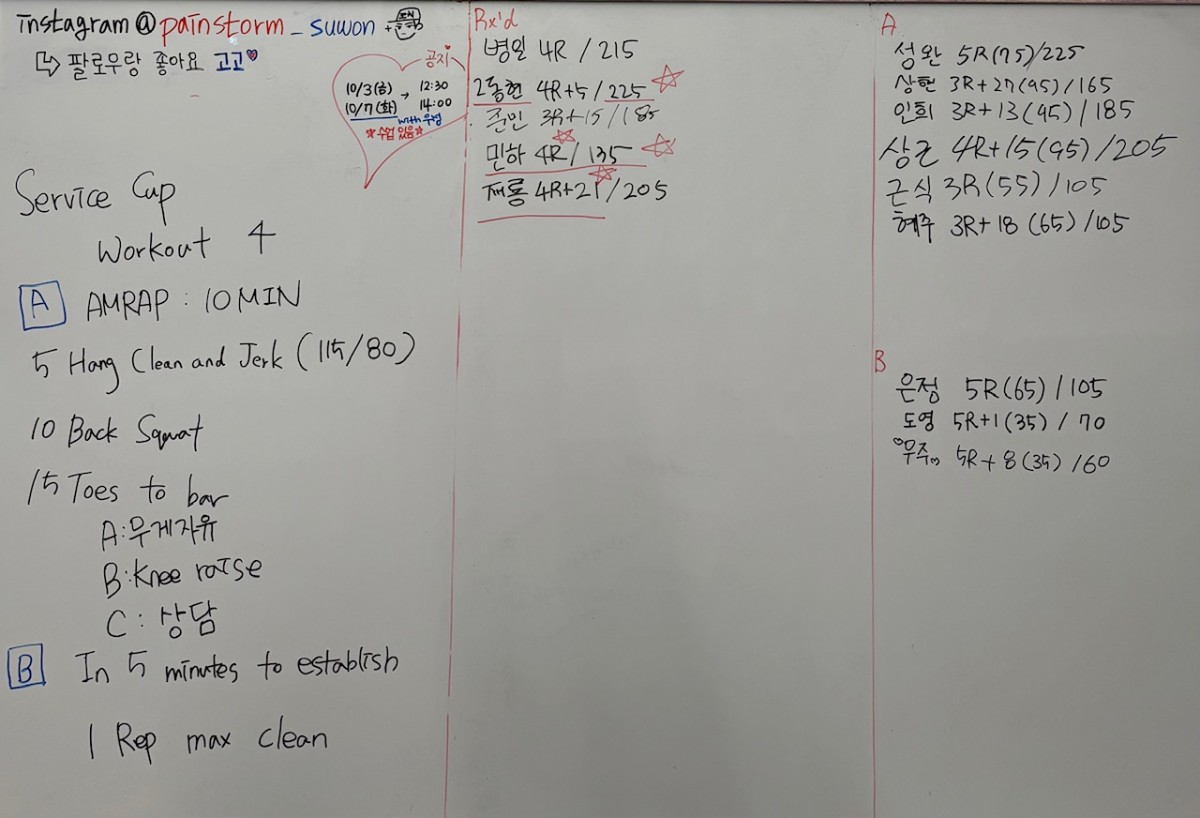 instagram@painstorm_suwon
↳ 팔로우랑 좋아요 고고♥
공지
10/3(금) → 12:30
10/7(화) 14:00
with 우영
☆수업 있음☆
Service Cup
Workout 4
A AMRAP : 10 MIN
5 Hang Clean and Jerk (115/80)
10 Back Squat
15 Toes to bar
A:무게자유
B:Knee raise
C: 상담
B In 5 minutes to establish
1 Rep max clean
Rx'd
병일 4R / 215
2동현 4R+5 / 225 ☆
준민 3R+15 / 185
민하 4R / 135 ☆
재룡 4R+21 / 205
A
성완 5R(75)/225
상헌 3R+27(95)/165
인희 3R+13(95)/185
상근 4R+15(95)/205
근식 3R(55)/105
혜주 3R+18 (65)/105
B
은정 5R(65)/105
도영 5R+1(35)/70
우주 5R+8(35)/60